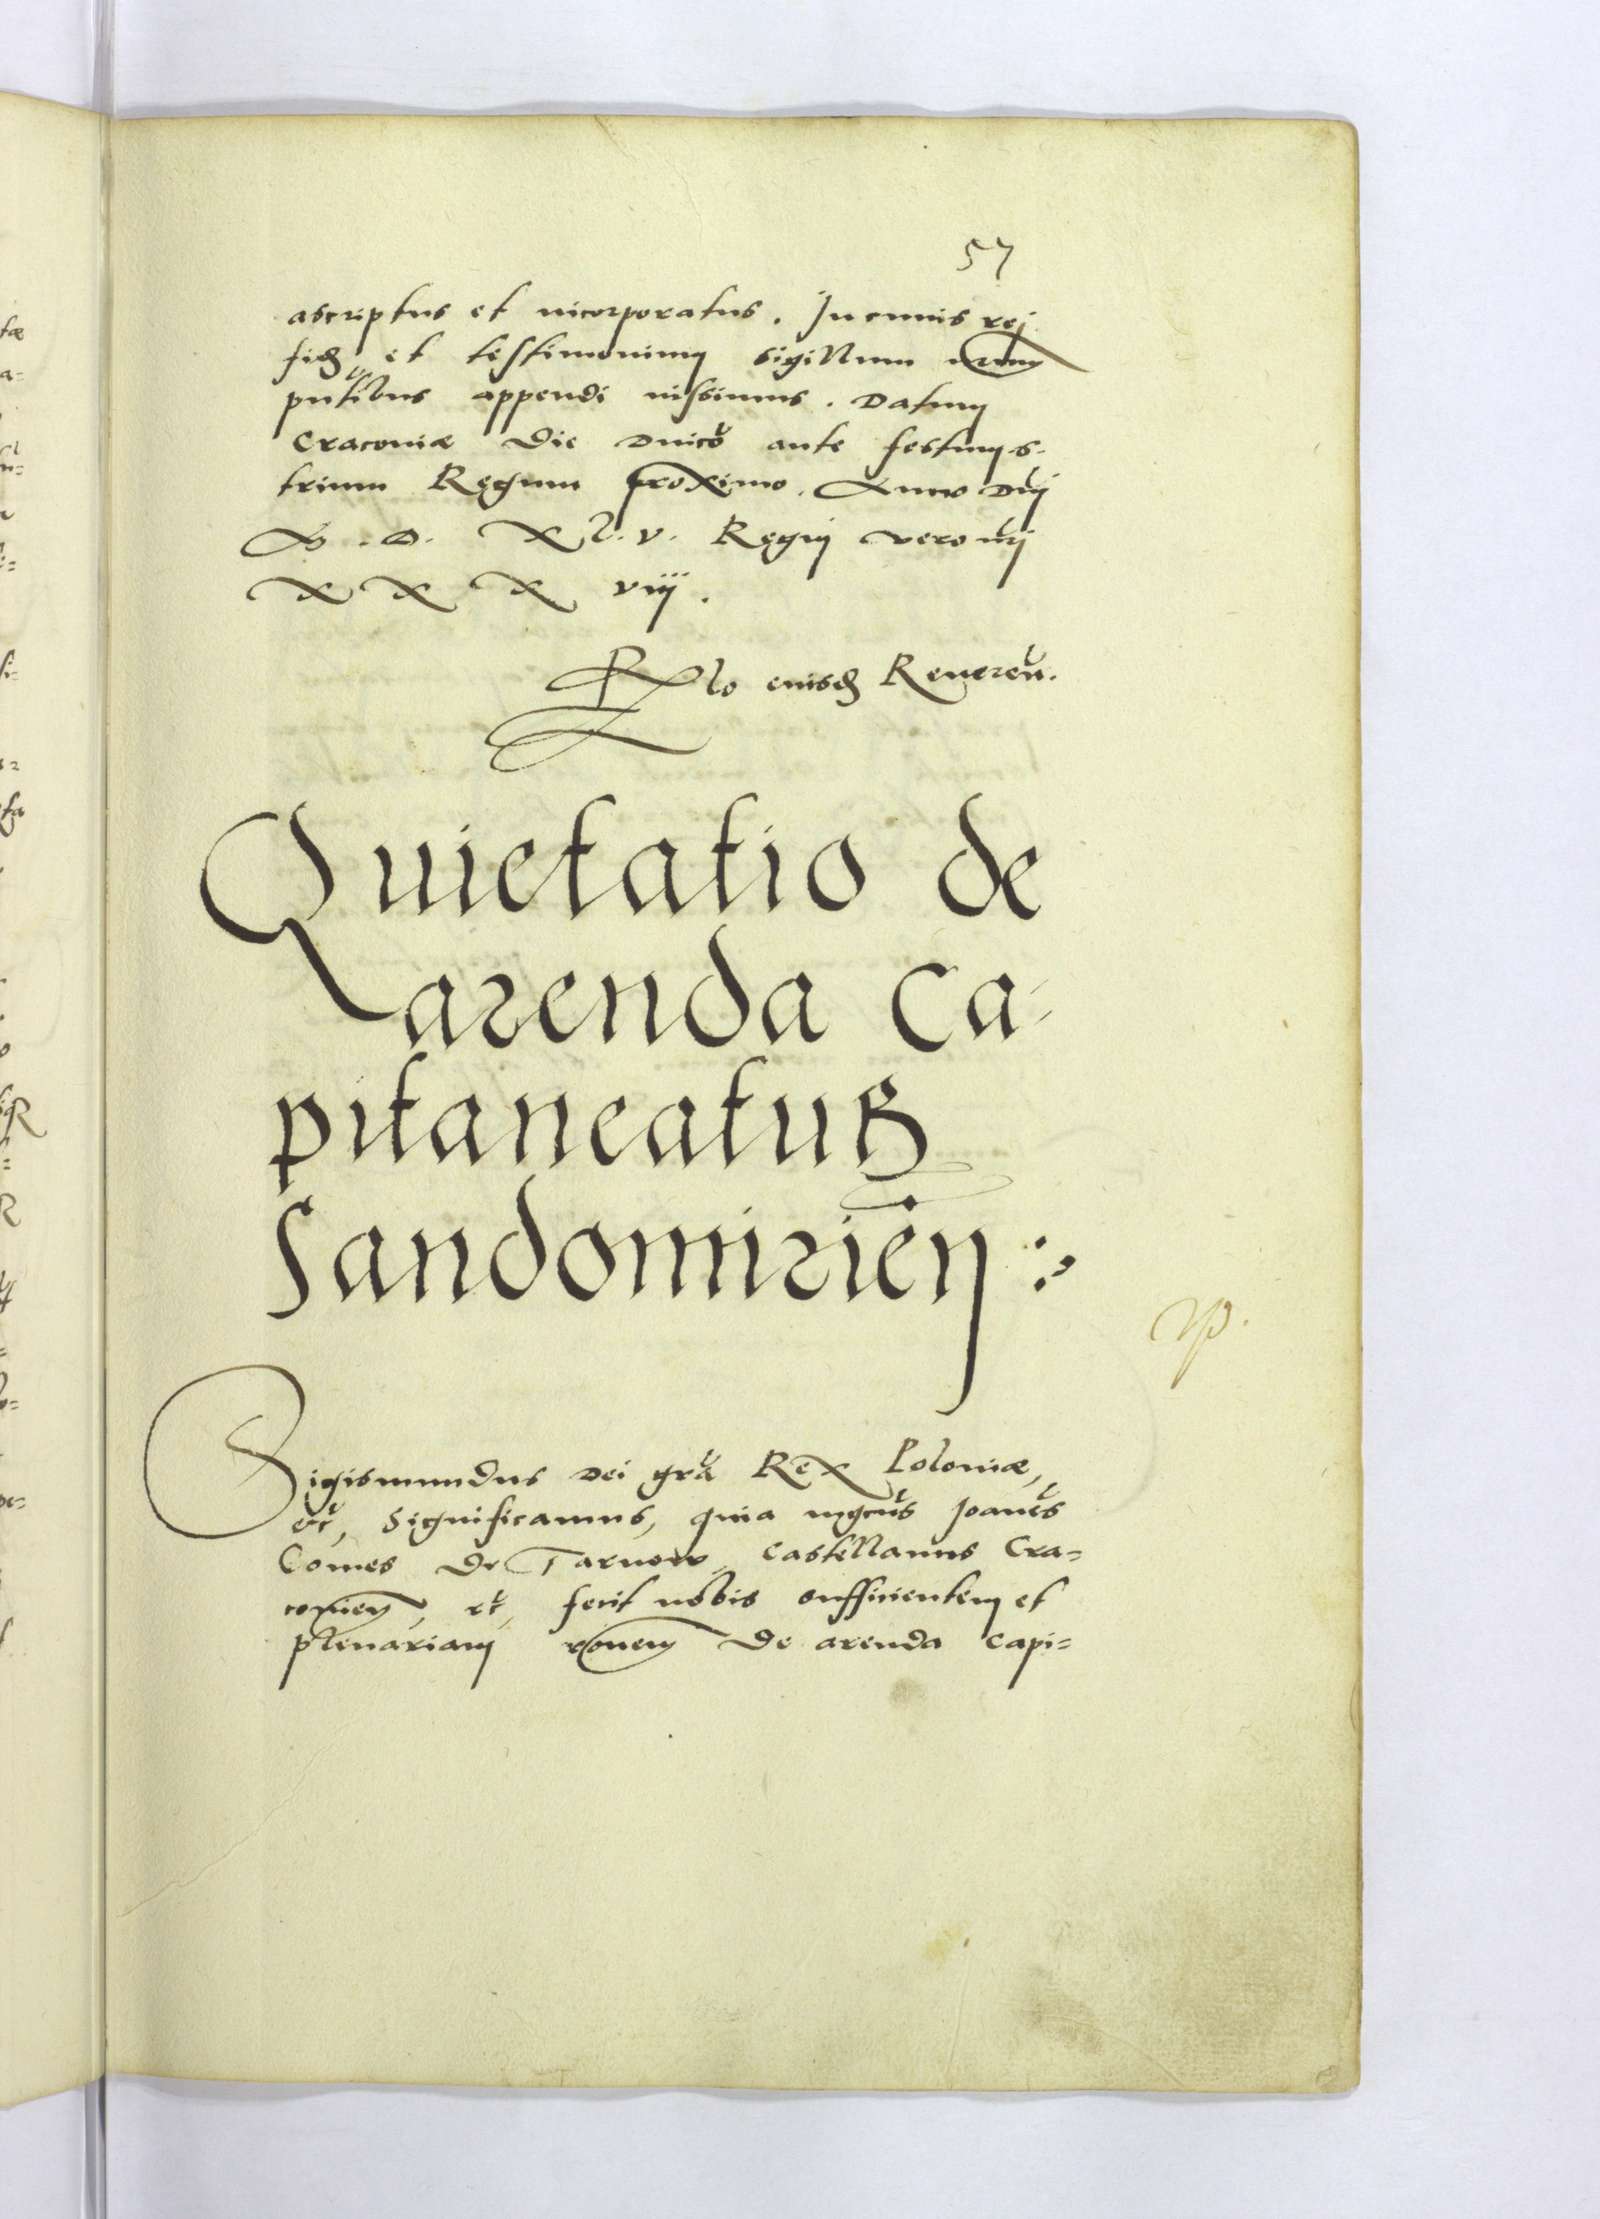 57
ascriptus et incorporatus. In cuius rej
fidē et testimonium sigillum nrum
pntibus appendi iussimus. Datum
Cracoviæ Die Dnico ante festum s.
trium Regum proximo. Anno Dnj
M. D. XL.V. Regnj vero nrj
XXXviij.
Rlo eiusdē Reveren.
Quietatio de
arenda Ca-
pitaneatus
Sandomirien :
Sigismundus Dei gra Rex Poloniæ,
etc, Significamus, quia mgcus Joanes
Comes De Tarnow, Castellanus Cra=
covien, etc, fecit nobis sufficientem et
plenariam ronem De arenda Capi=